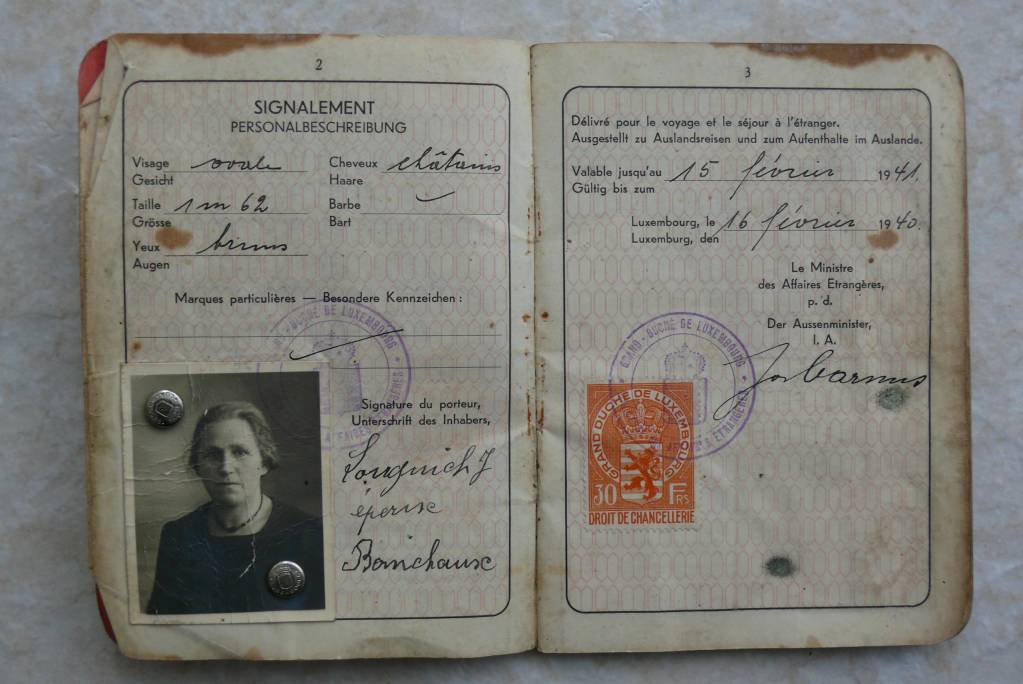 2
SIGNALEMENT
PERSONALBESCHREIBUNG
Visage ovale
Gesicht
Cheveux châtains
Haare
Taille 1 m 62
Grösse
Barbe
Bart
Yeux bruns
Augen
Marques particulières — Besondere Kennzeichen :
Signature du porteur,
Unterschrift des Inhabers,
J
épouse
3
Délivré pour le voyage et le séjour à l'étranger.
Ausgestellt zu Auslandsreisen und zum Aufenthalte im Auslande.
Valable jusqu'au 15 février 1941.
Gültig bis zum
Luxembourg, le 16 février 1940.
Luxemburg, den
Le Ministre
des Affaires Etrangères,
p. d.
Der Aussenminister,
I. A.
GRAND-DUCHÉ DE LUXEMBOURG
GRAND DUCHÉ DE LUXEMBOURG
30 FRS
DROIT DE CHANCELLERIE